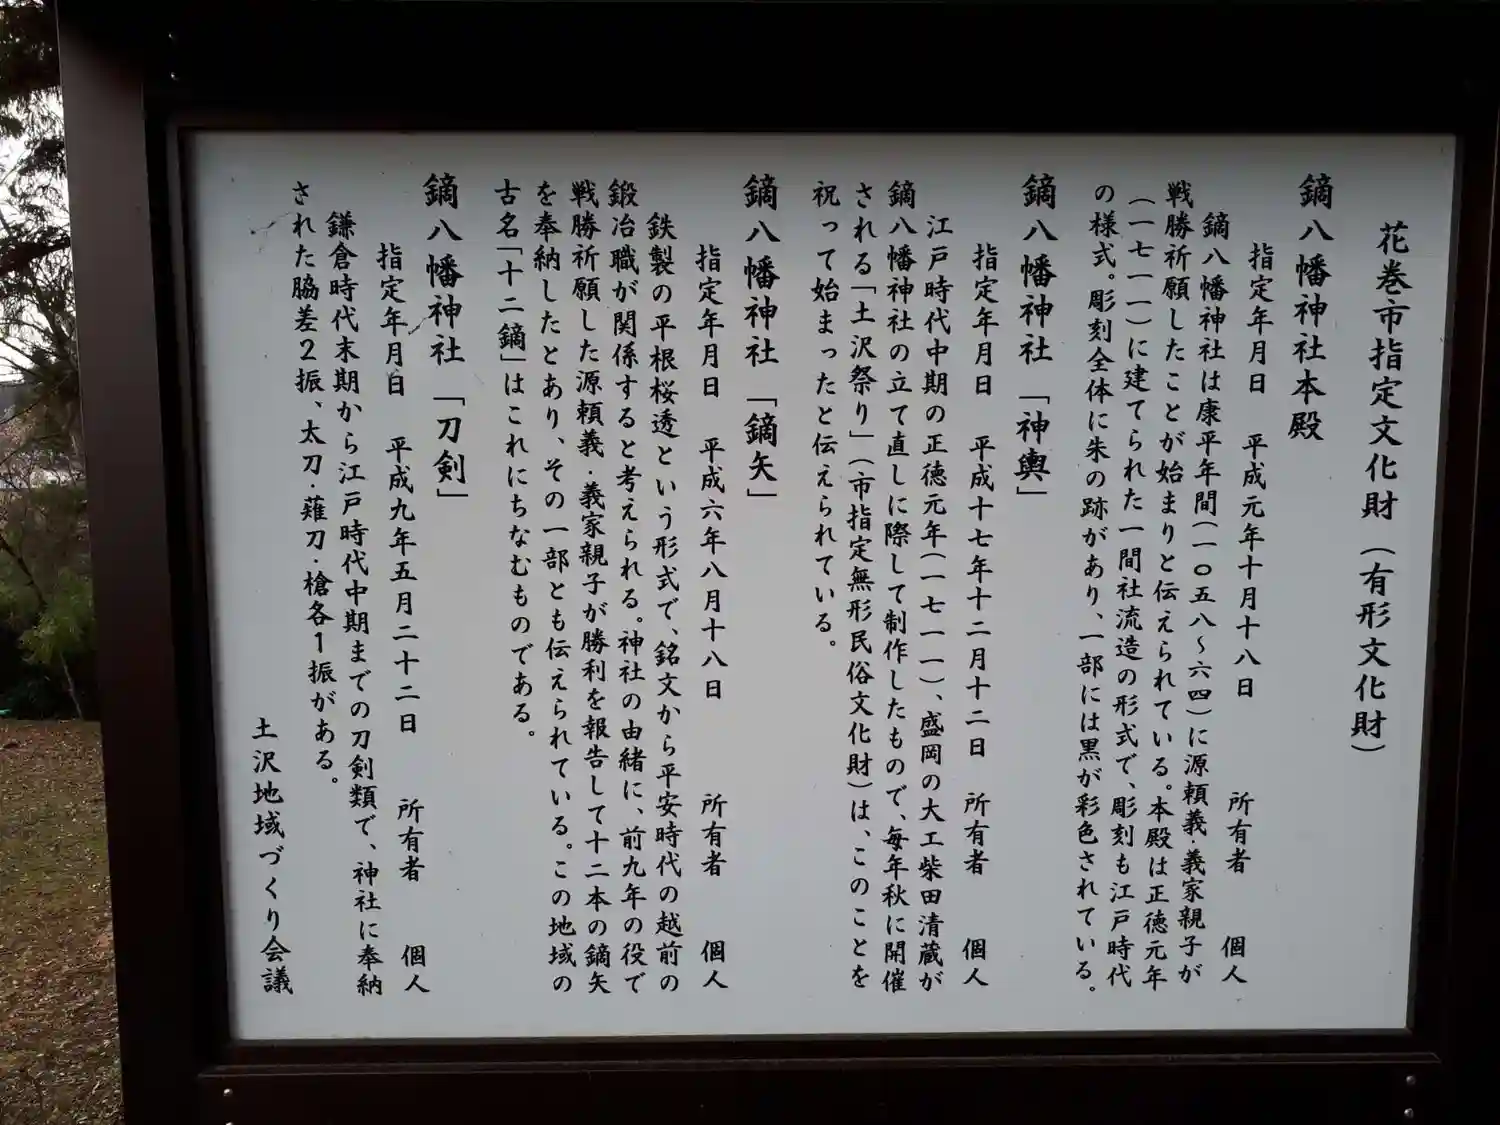 花巻市指定文化財（有形文化財）
鏑八幡神社本殿
指定年月日　平成元年十月十八日　所有者　個人
鏑八幡神社は康平年間（一〇五八～六四）に源頼義・義家親子が
戦勝祈願したことが始まりと伝えられている。本殿は正徳元年
（一七一一）に建てられた一間社流造の形式で、彫刻も江戸時代
の様式。彫刻全体に朱の跡があり、一部には黒が彩色されている。
鏑八幡神社「神輿」
指定年月日　平成十七年十二月十二日　所有者　個人
江戸時代中期の正徳元年（一七一一）、盛岡の大工柴田清蔵が
鏑八幡神社の立て直しに際して制作したもので、毎年秋に開催
される「土沢祭り」（市指定無形民俗文化財）は、このことを
祝って始まったと伝えられている。
鏑八幡神社「鏑矢」
指定年月日　平成六年八月十八日　所有者　個人
鉄製の平根桜透という形式で、銘文から平安時代の越前の
鍛冶職が関係すると考えられる。神社の由緒に、前九年の役で
戦勝祈願した源頼義・義家親子が勝利を報告して十二本の鏑矢
を奉納したとあり、その一部とも伝えられている。この地域の
古名「十二鏑」はこれにちなむものである。
鏑八幡神社「刀剣」
指定年月日　平成九年五月二十二日　所有者　個人
鎌倉時代末期から江戸時代中期までの刀剣類で、神社に奉納
された脇差２振、太刀・薙刀・槍各１振がある。
土沢地域づくり会議